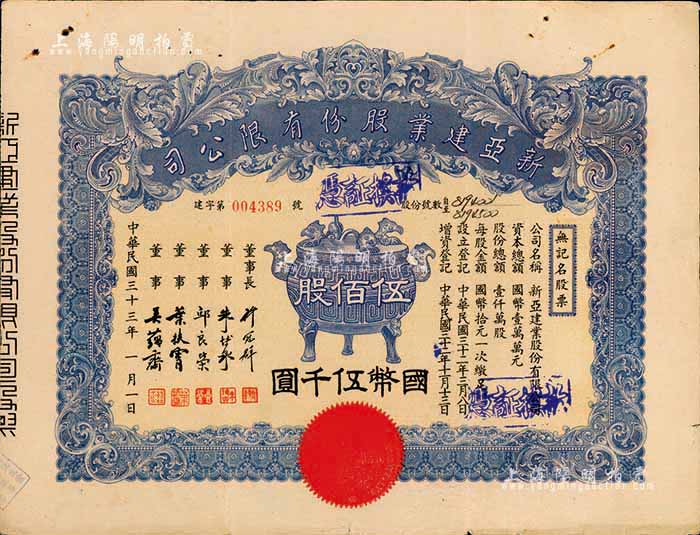 上海陽明拍賣
www.yangmingauction.com
新亞建業股份有限公司
無記名股票
公司名稱 新亞建業股份有限
資本總額 國幣壹萬萬元
股份總額 壹仟萬股
每股金額 國幣拾元一次繳足
設立登記 中華民國三十二年三月八日
增資登記 中華民國三十二年十月十三日
股份號數
換訖憑証
建字第 004389 號
上海陽明拍賣
伍佰股
國幣伍千圓
董事長
董事 朱
董事 邱良榮
董事 葉扶霄
董事 吳蘊齋
中華民國三十三年一月一日
換訖憑証
上海陽明拍賣
www.yangmingauction.com